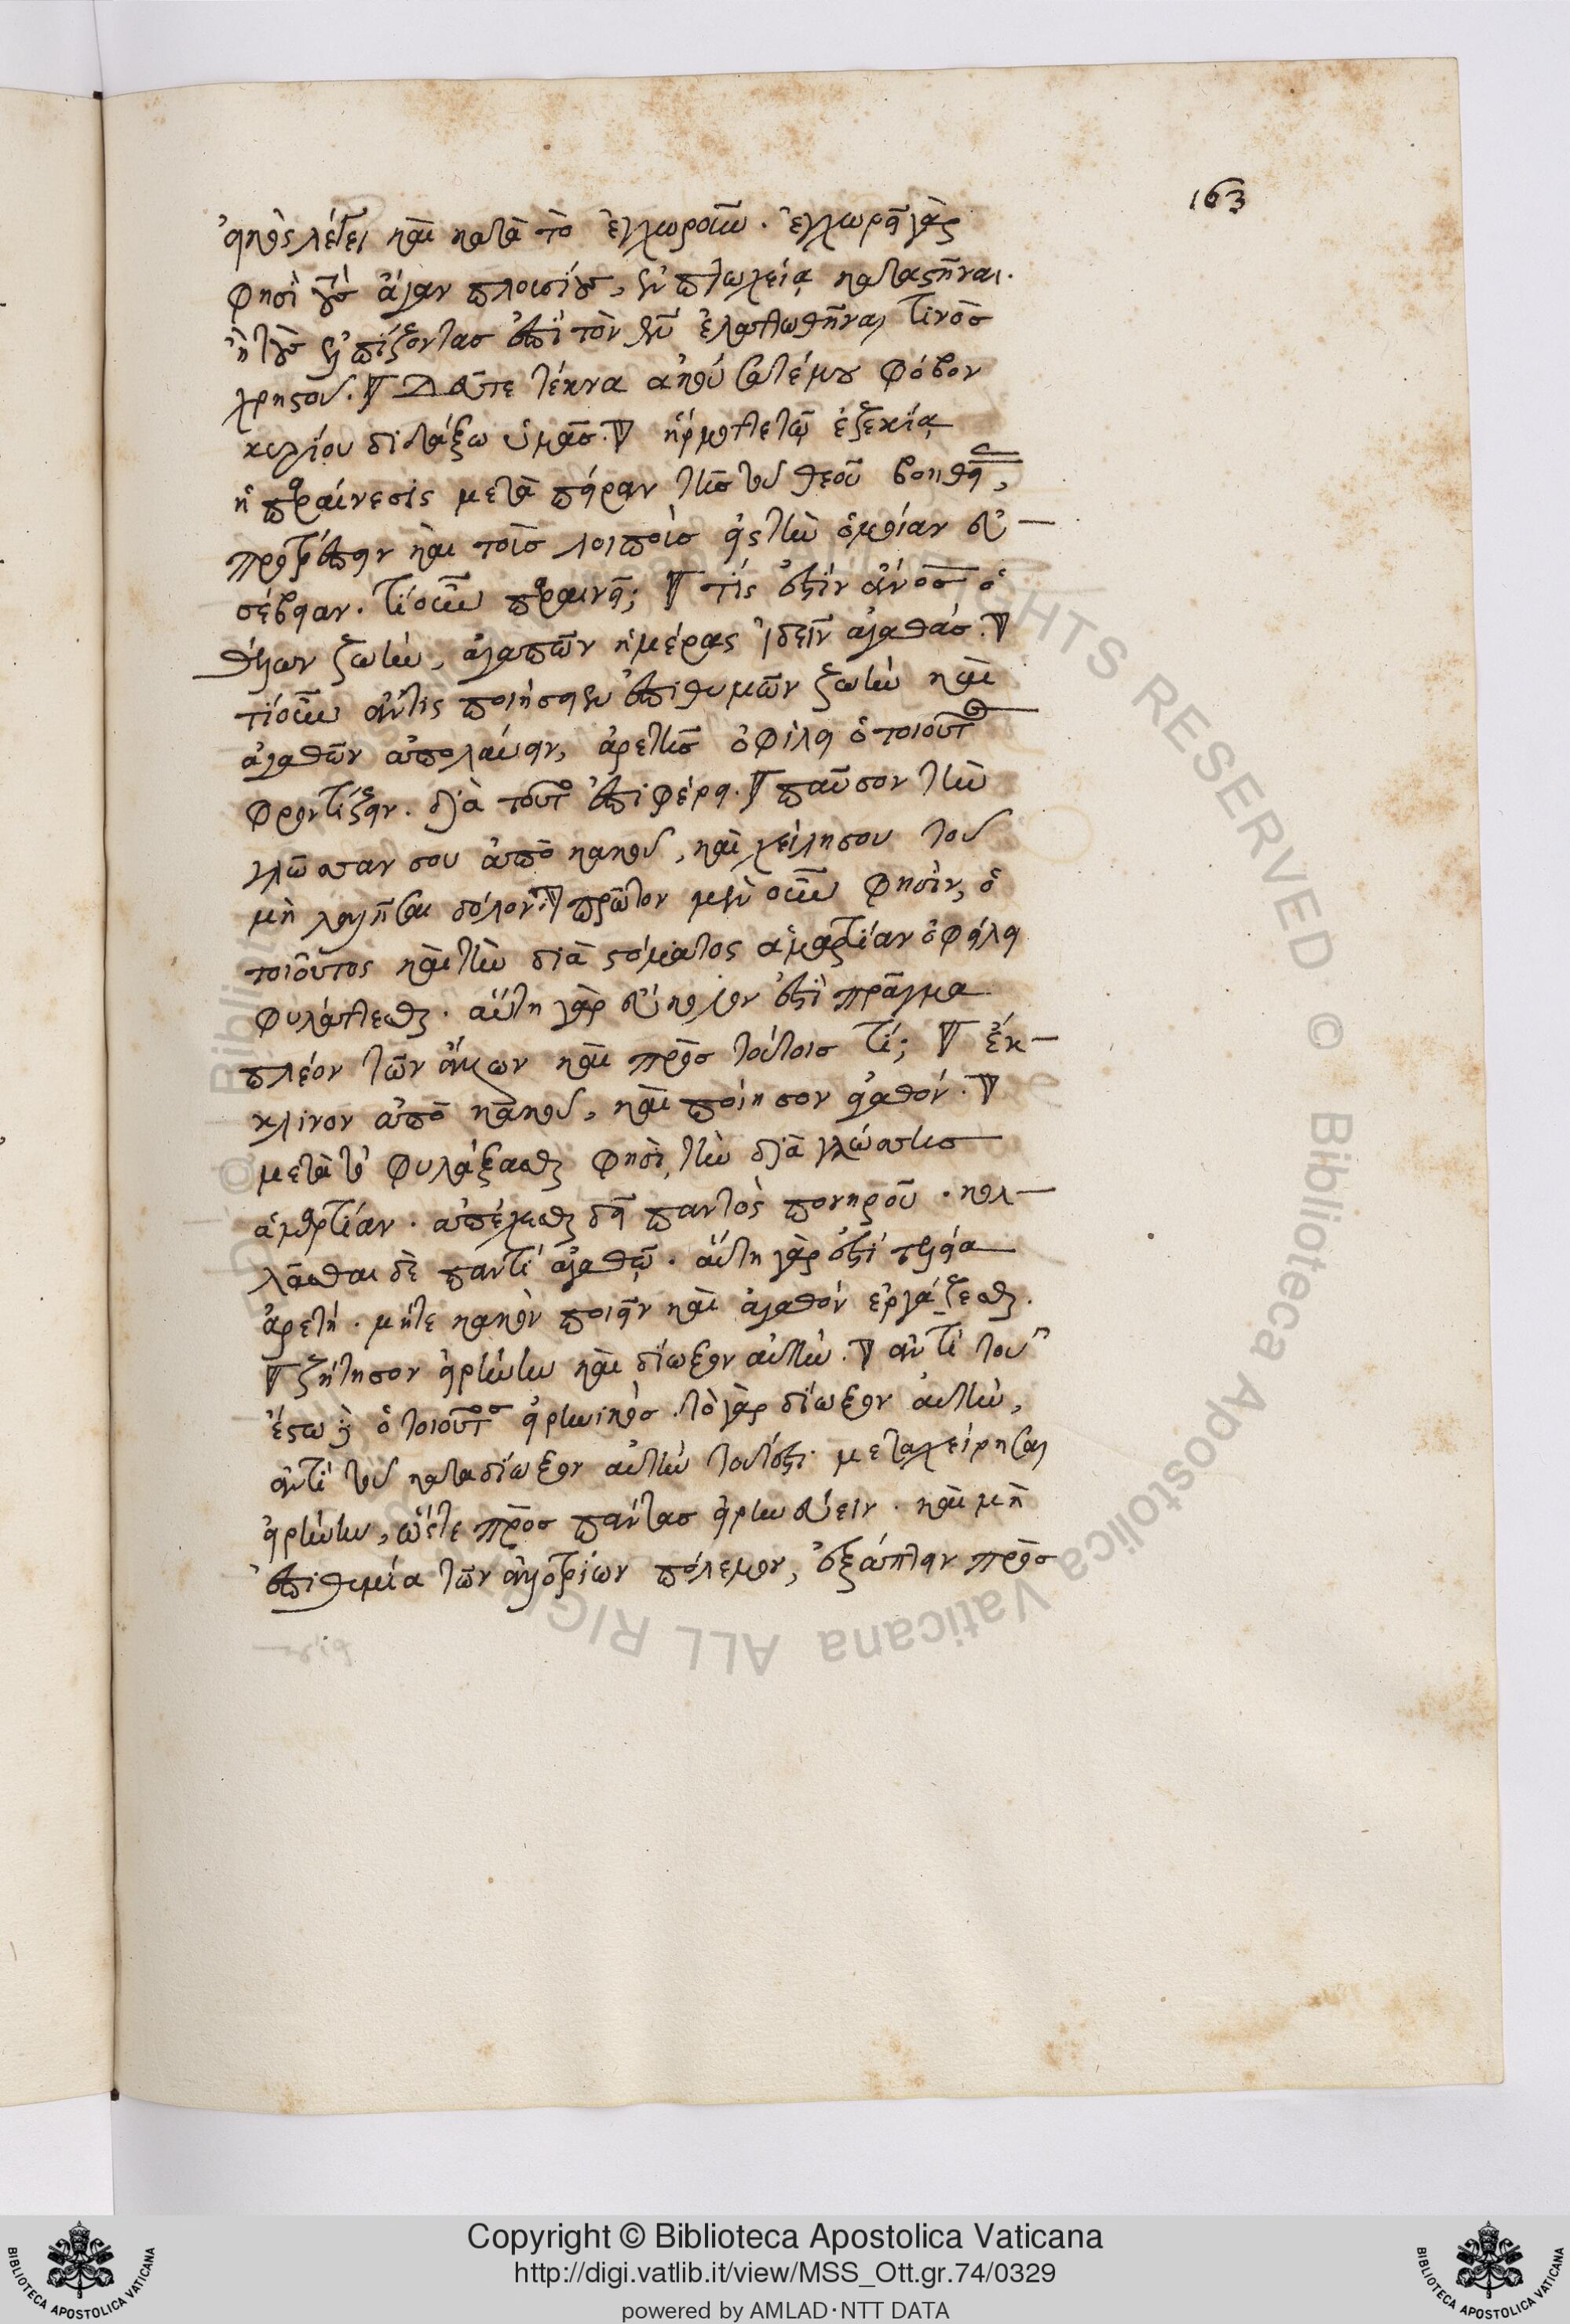 163
εἰκὸς λέγει καὶ κατὰ τὸ ἐγχωροῦν. ἐγχωρεῖ γὰρ
φησὶ τοὺς ἄγαν πλουσίους, ἐν πτωχείᾳ καταστῆναι.
ἢ τοὺς ἐλπίζοντας ἐπὶ τὸν θεὸν ἐλαττωθῆναι τινὸς
χρηστοῦ. Δεῦτε τέκνα ἀκούσατέ μου φόβον
κυρίου διδάξω ὑμᾶς. ἡρμόττε τῷ ἐζεκίᾳ
ἡ παραίνεσις μετὰ πεῖραν τῆς τοῦ θεοῦ βοηθείας,
προτρέπειν καὶ τοῖς λοιποῖς εἰς τὴν ὁμοίαν εὐ
σέβειαν. τί οὖν παραινεῖ; τίς ἐστὶν ἄνος ὁ
θέλων ζωὴν, ἀγαπῶν ἡμέρας ἰδεῖν ἀγαθάς.
τί οὖν ἄν τις ποιήσειεν ἐπιθυμῶν ζωὴν καὶ
ἀγαθῶν ἀπολαύειν, ἀρετῆς ὀφίλει ὁ τοιοῦτος
φροντίζειν. διὰ τοῦτο ἐπιφέρει. παῦσον τὴν
γλῶσσαν σου ἀπὸ κακοῦ, καὶ χείλη σου τοῦ
μὴ λαλῆσαι δόλον. πρῶτον μὲν οὖν φησὶν, ὁ
τοιοῦτος καὶ τὴν διὰ στόματος ἁμαρτίαν ὀφείλει
φυλάττεσθαι. αὕτη γὰρ εὔκολον ἐστὶ πρᾶγμα
πλέον τῶν ἄλλων καὶ πρὸς τούτοις τί; ἔκ
κλινον ἀπὸ κακοῦ, καὶ ποίησον ἀγαθόν.
μετὰ τὸ φυλάξασθαι φησὶ, τὴν διὰ γλώσσης
ἁμαρτίαν. ἀπέχεσθαι δεῖ παντὸς πονηροῦ. κολ
λᾶσθαι δὲ παντὶ ἀγαθῷ. αὕτη γὰρ ἐστὶ τελεία
ἀρετή. μήτε κακὸν ποιεῖν καὶ ἀγαθόν ἐργάζεσθαι.
ζήτησον εἰρήνην καὶ δίωξον αὐτήν. ἀντὶ τοῦ
ἔστω ὁ τοιοῦτος εἰρηνικός. τὸ γὰρ δίωξον αὐτὴν,
ἀντὶ τοῦ καταδίωξον αὐτὴν τουτέστι μεταχείρησαι
εἰρήνην, ὥστε πρὸς πάντας εἰρηνεύειν. καὶ μὴ
ἐπιθυμία τῶν ἀλλοτρίων πόλεμον, ἐξάπτειν πρὸς
Copyright © Biblioteca Apostolica Vaticana
http://digi.vatlib.it/view/MSS_Ott.gr.74/0329
powered by AMLAD·NTT DATA
BIBLIOTECA APOSTOLICA VATICANA
BIBLIOTECA APOSTOLICA VATICANA